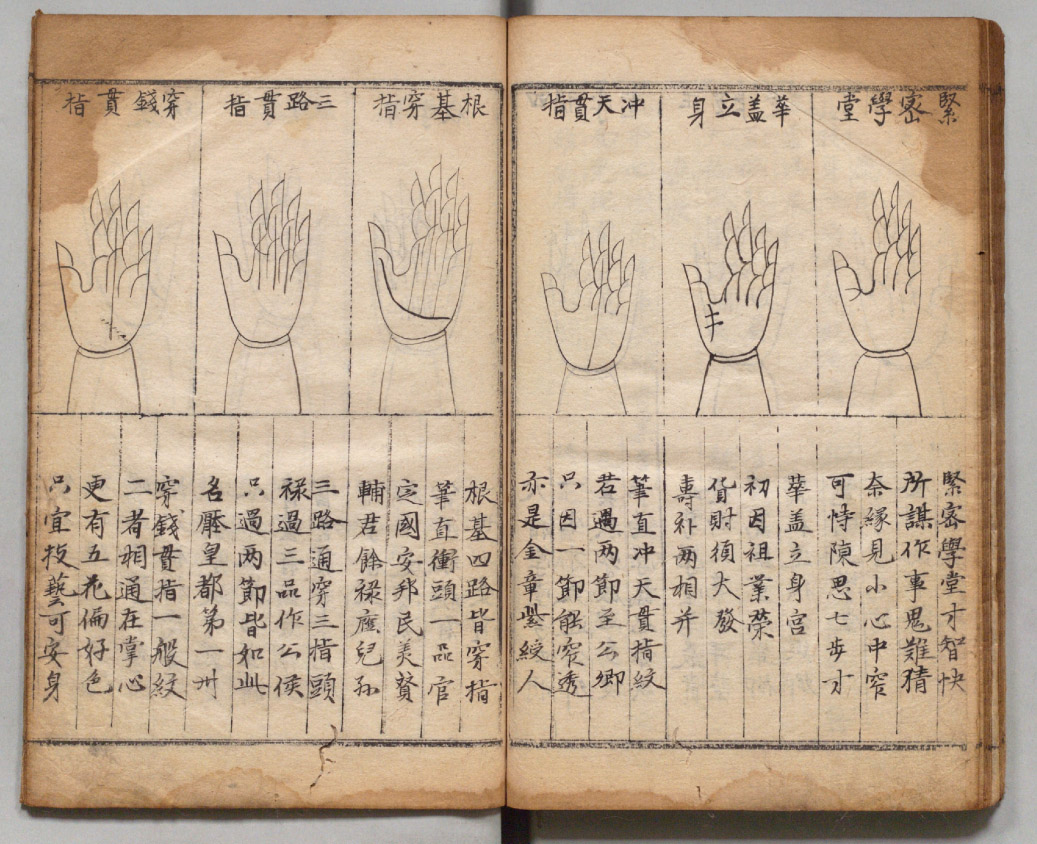 緊密學堂
緊密學堂才智快
所謀作事鬼難猜
奈緣見小心中窄
可恃陳思七步才
華盖立身
華盖立身宫
初因祖業榮
貨財須大發
壽祚两相并
冲天貫指
筆直冲天貫指紋
若遇两節至公卿
只因一節能窄透
亦是金章紫綬人
根基穿指
根基四路皆穿指
筆直衝頭一品官
定國安邦民美贊
輔君餘禄廕兒孙
三路貫指
三路通穿三指頭
禄過三品作公侯
只過两節皆如此
名壓皇都第一州
穿錢貫指
穿錢貫指一般紋
二者相通在掌心
更有五花偏好色
只宜技藝可安身